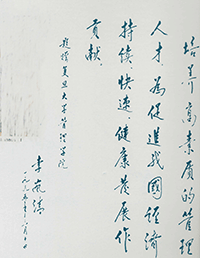 培养高素质的管理
人才为促进我国经济
持续快速健康发展作
贡献
题赠复旦大学管理学院
李岚清